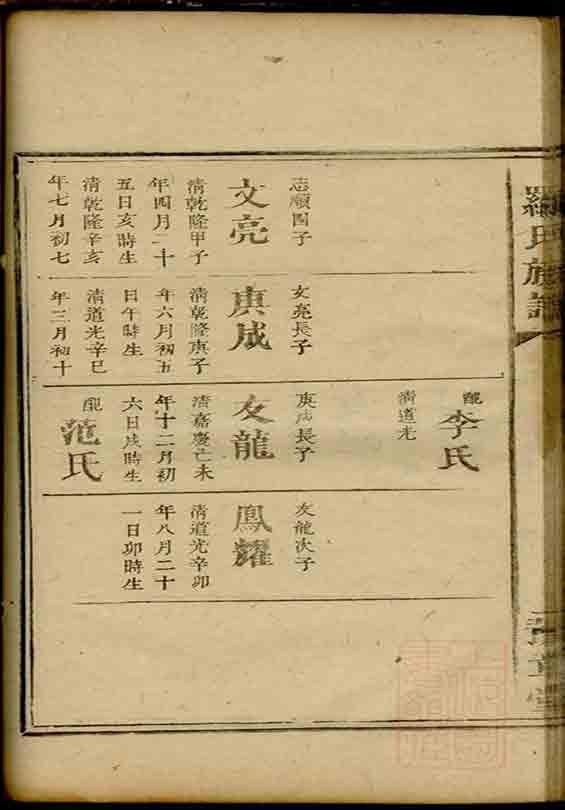 羅氏族譜
配李氏
清道光
志順四子
文亮
清乾隆甲子
年四月二十
五日亥時生
清乾隆辛亥
年七月初七
文亮長子
庚成
清乾隆庚子
年六月初五
日午時生
清道光辛巳
年三月初十
庚成長子
友龍
清嘉慶丁未
年十二月初
六日戌時生
配范氏
友龍次子
鳳耀
清道光辛卯
年八月二十
一日卯時生